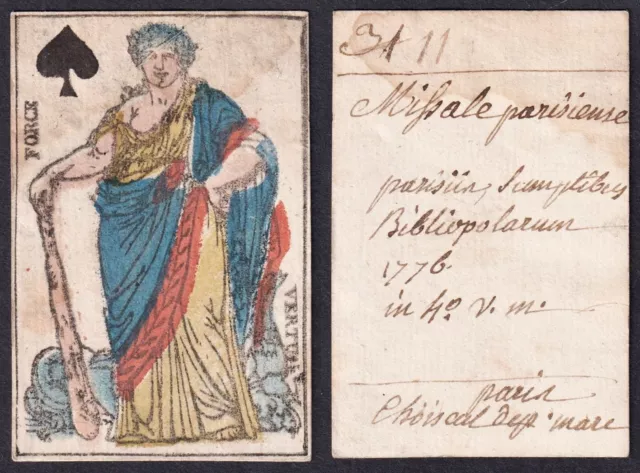 FORCE
VERTU
3111
Missale parisiense
parisiis, Sumptibus
Bibliopolarum
1776.
in 4o v. m.
paris
Choiseal dept. mare